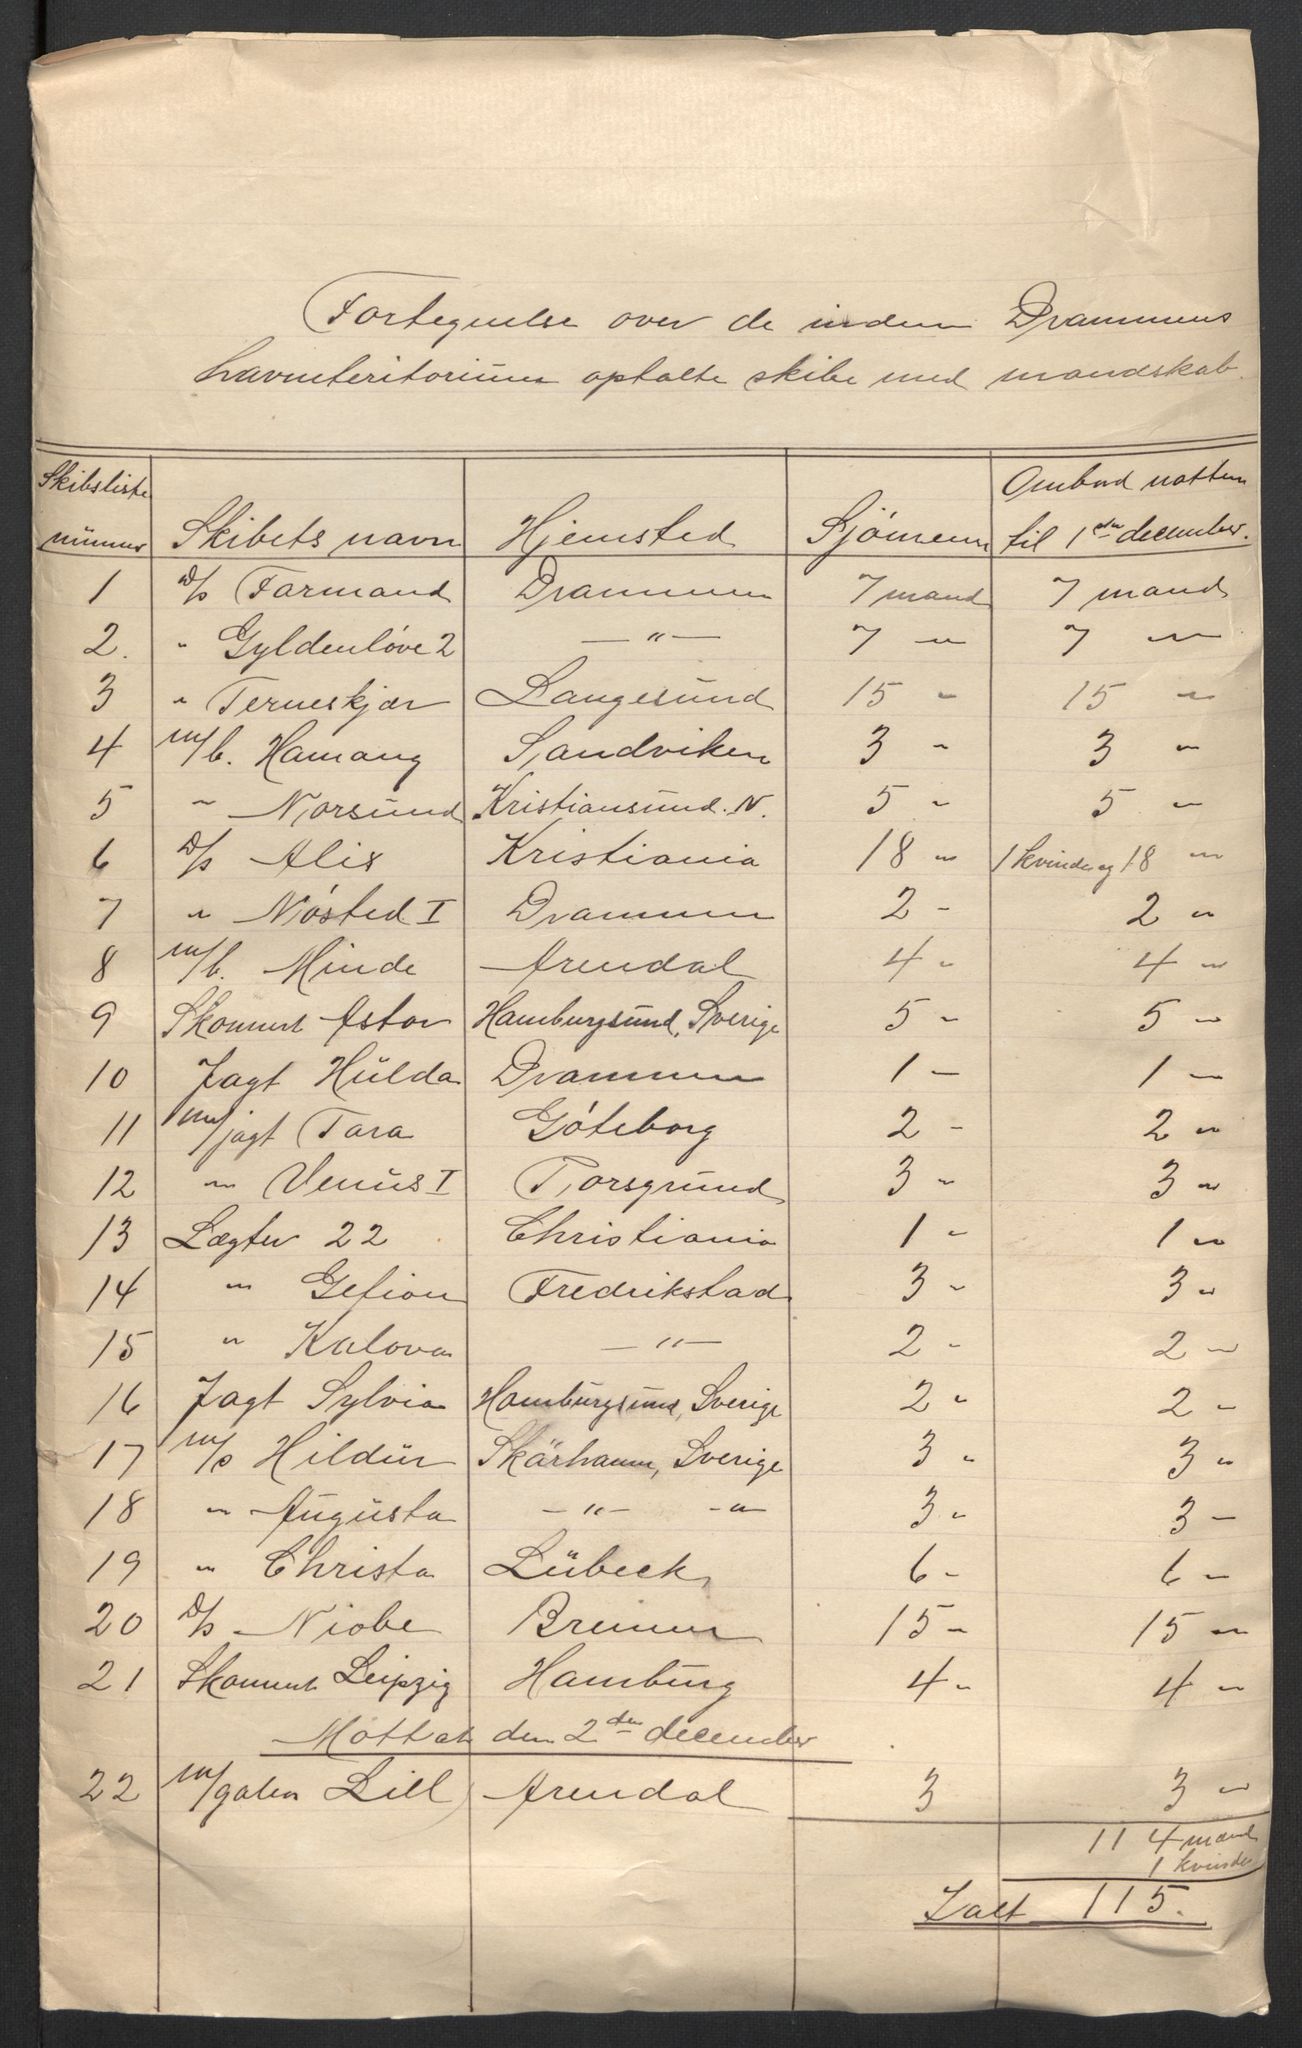 Fortegnelse over de inden Drammens
havneteritorium optalte skibe med mandskab.
Skibsliste nummer | Skibets navn | Hjemsted | Sjømenn | Ombord natten til 1ste december.
1 D/s Farmand Drammen 7 mand 7 mand
2. " Gyldenløve 2 —"— 7 " 7 "
3 " Terneskjær Langesund 15 " 15 "
4 m/b. Hamang Sandviken 3 " 3 "
5 " Norsund Kristiansund. N. 5 " 5 "
6 D/s Alix Kristiania 18 " 1 kvinde og 18 "
7 " Nøsted I Drammen 2 " 2 "
8 m/b. Minde Arendal 4 " 4 "
9 Skonnert Astor Hamburgsund, Sverige 5 " 5 "
10 Jagt Hulda Drammen 1 " 1 "
11 m/jagt Tara Göteborg 2 " 2 "
12 " Venus I Porsgrund 3 " 3 "
13 Lægter 22 Christiania 1 " 1 "
14 " Gefion Fredrikstad 3 " 3 "
15 " Kalova —"— 2 " 2 "
16 Jagt Sylvia Hamburgsund, Sverige 2 " 2 "
17 m/s Hildur Skärhamn, Sverige 3 " 3 "
18 " Augusta —"— —"— 3 " 3 "
19 " Christa Lübeck 6 " 6 "
20 D/s Niobe Bremen 15 " 15 "
21 Skonnert Leipzig Hamburg 4 " 4 "
Mottat den 2den december
22 m/galea Lill Arendal 3 3 "
114 mænd
1 kvinde
Ialt 115.